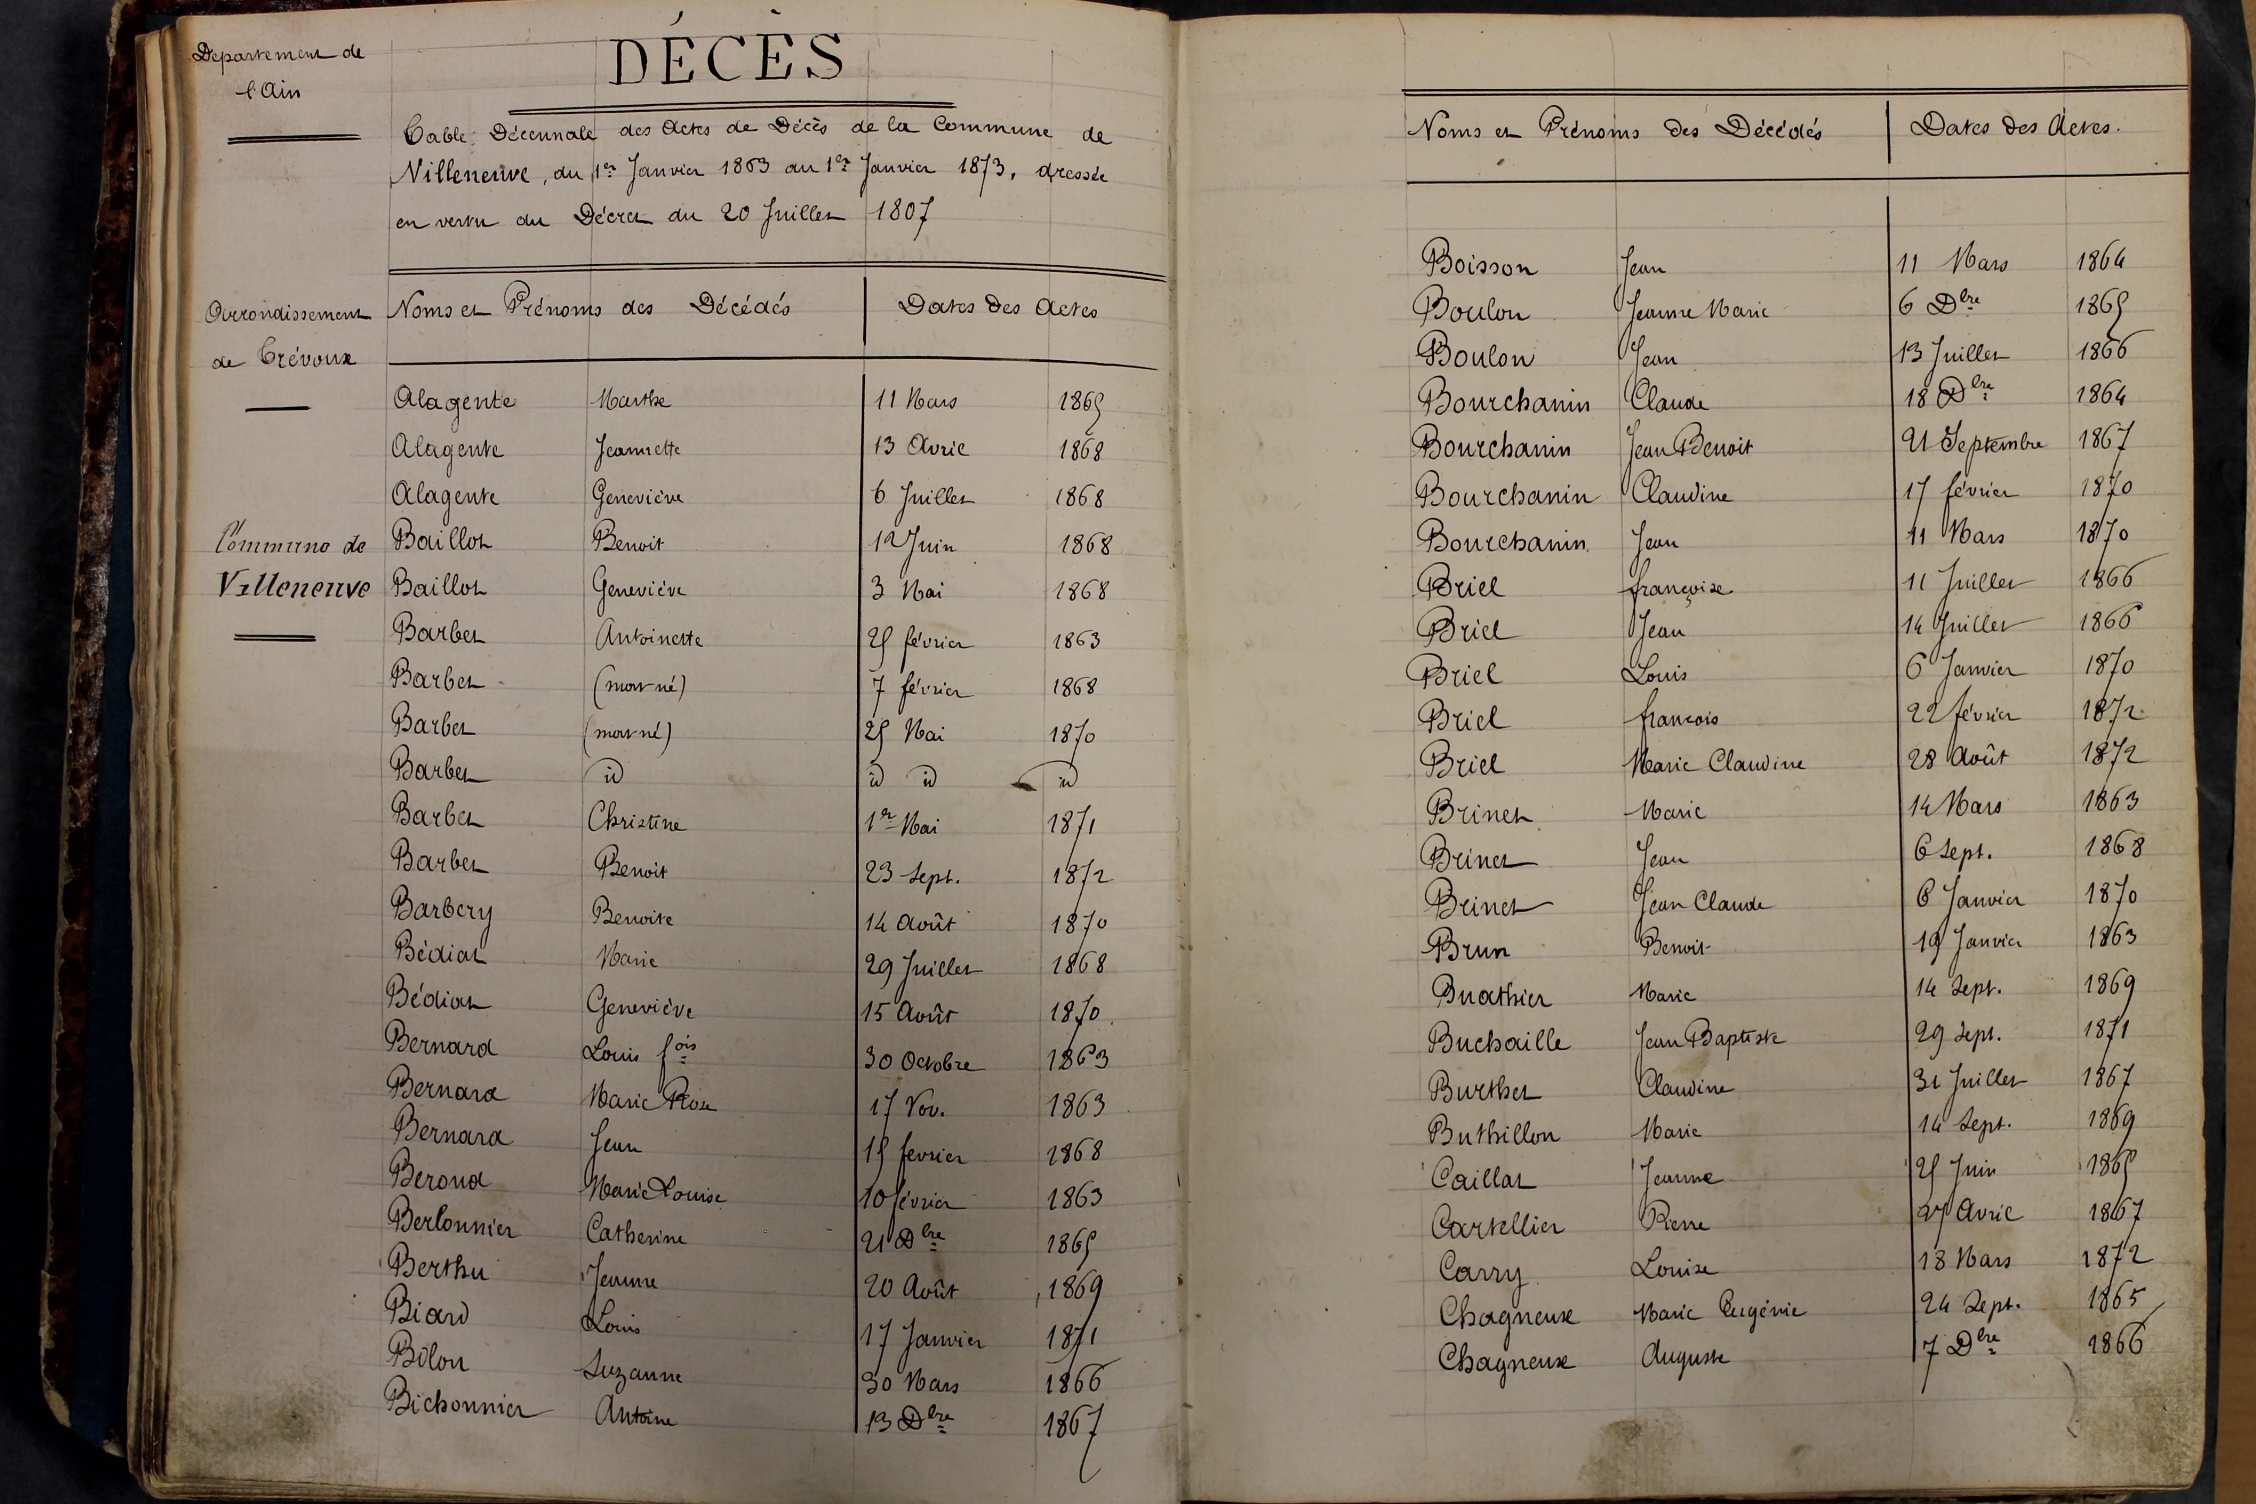 Département de
l'Ain
DÉCÈS
Table Décennale des Actes de Décès de la Commune de
Villeneuve, du 1er Janvier 1863 au 1er Janvier 1873, dressée
en vertu du Décret du 20 Juillet 1807
Arrondissement
de Trévoux
Commune de
Villeneuve
Noms et Prénoms des Décédés Dates des Actes
Alagente Marthe 11 Mars 1865
Alagente Jeannette 13 Avril 1868
Alagente Geneviève 6 Juillet 1868
Baillot Benoit 12 Juin 1868
Baillot Geneviève 3 Mai 1868
Barbet Antoinette 25 février 1863
Barbet (mort né) 7 février 1868
Barbet (mort né) 25 Mai 1870
Barbet id id id id
Barbet Christine 1er Mai 1871
Barbet Benoit 23 Sept. 1872
Barbery Benoite 14 Août 1870
Bédiat Marie 29 Juillet 1868
Bédiat Geneviève 15 Août 1870
Bernard Louis fois 30 Octobre 1863
Bernard Marie Rose 17 Nov. 1863
Bernard Jean 15 fevrier 1868
Beroud Marie Louise 10 février 1863
Berlonnier Catherine 21 Dbre 1865
Berthu Jeanne 20 Août 1869
Biard Louis 17 Janvier 1871
Bilon Suzanne 30 Mars 1866
Bichonnier Antoine 13 Dbre 1867
Noms et Prénoms des Décédés Dates des Actes.
Boisson Jean 11 Mars 1864
Boulon Jeanne Marie 6 Dbre 1865
Boulon Jean 13 Juillet 1866
Bourchanin Claude 18 Dbre 1864
Bourchanin Jean Benoit 21 Septembre 1867
Bourchanin Claudine 17 février 1870
Bourchanin Jean 11 Mars 1870
Briel françoise 11 Juillet 1866
Briel Jean 14 Juillet 1866
Briel Louis 6 Janvier 1870
Briel francois 22 février 1872
Briel Marie Claudine 28 Août 1872
Brinet Marie 14 Mars 1863
Brinet Jean 6 Sept. 1868
Brinet Jean Claude 6 Janvier 1870
Brun Benoit 19 Janvier 1863
Buathier Marie 14 Sept. 1869
Buchaille Jean Baptiste 29 Sept. 1871
Burthet Claudine 31 Juillet 1867
Buthillon Marie 14 Sept. 1869
Caillat Jeanne 25 Juin 1865
Cartellier Pierre 27 Avril 1867
Carry Louise 18 Mars 1872
Chagneux Marie Eugénie 24 Sept. 1865
Chagneux Auguste 7 Dbre 1866